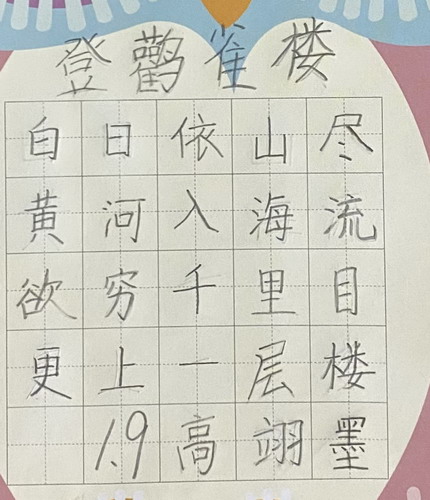 登鹳雀楼
白日依山尽
黄河入海流
欲穷千里目
更上一层楼
1.9高翊墨